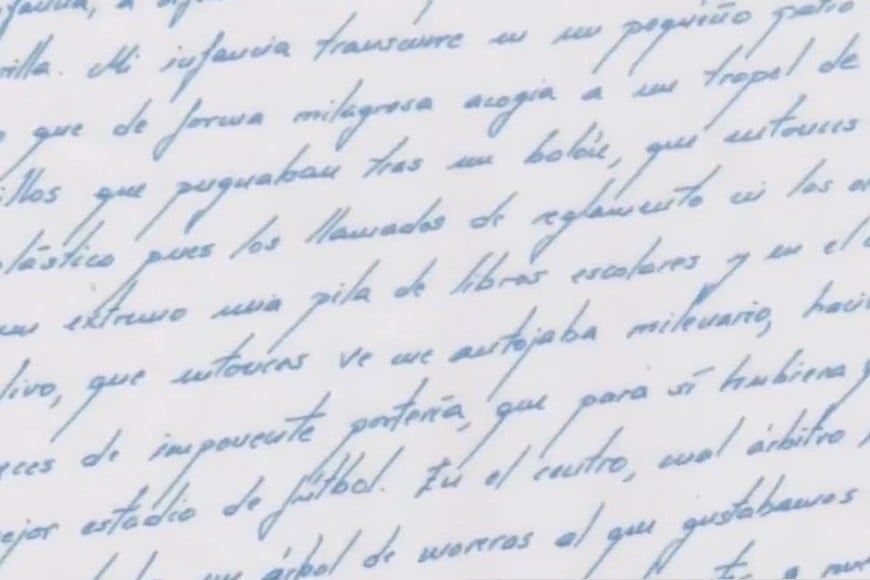 infancia, a
rilla. Mi infancia transcurre en un pequeño patio
que de forma milagrosa acogia a un tropel de
illos que pugnaban tras un balón, que entonces
plástico pues los llamados de reglamento ni los
un extremo una pila de libros escolares y en el
livo, que entonces se me antojaba milenario, hací
eces de imponente portería, que para sí hubiera
ejor estadio de fútbol. En el centro, cual árbitro
un árbol de moreras al que gustábamos